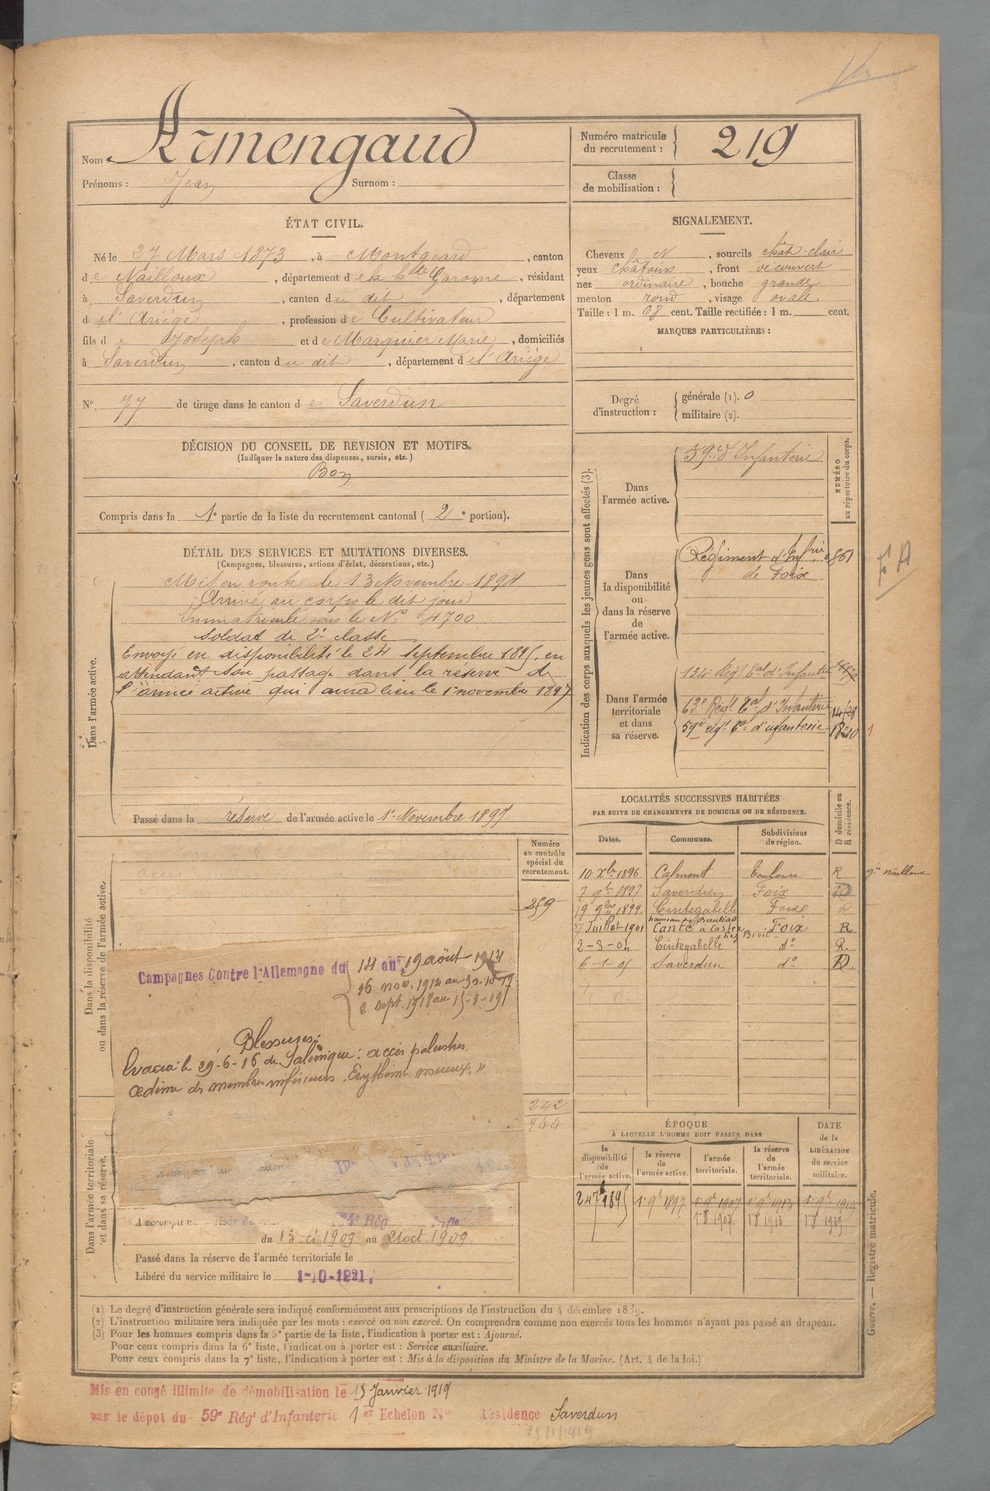 Nom : Armengaud
Prénoms : Jean Surnom :
Numéro matricule du recrutement : 219
Classe de mobilisation :
ÉTAT CIVIL.
Né le 27 Mars 1873, à Montgeard, canton
de Nailloux, département de la Hte Garonne, résidant
à Saverdun, canton du dit, département
de l'Ariège, profession de Cultivateur
fils de Joseph et de Marquier Marie, domiciliés
à Saverdun, canton du dit, département de l'Ariège
N° 77 de tirage dans le canton de Saverdun
SIGNALEMENT.
Cheveux ch N, sourcils chât-clair
yeux châtains, front découvert
nez ordinaire, bouche grande
menton rond, visage ovale
Taille : 1 m. 68 cent. Taille rectifiée : 1 m. cent.
MARQUES PARTICULIÈRES :
Degré d'instruction : générale (1). 0
militaire (2).
DÉCISION DU CONSEIL DE REVISION ET MOTIFS.
(Indiquer la nature des dispenses, sursis, etc.)
Bon
Compris dans la 1e partie de la liste du recrutement cantonal (2e portion).
DÉTAIL DES SERVICES ET MUTATIONS DIVERSES.
(Campagnes, blessures, actions d'éclat, décorations, etc.)
Dans l'armée active.
Mis en route le 13 Novembre 1894
Arrivé au corps le dit jour
Immatriculé sous le N° 4700
Soldat de 2e classe
Envoyé en disponibilité le 24 septembre 1895, en
attendant son passage dans la réserve de
l'armée active qui aura lieu le 1er novembre 1897
Passé dans la réserve de l'armée active le 1er Novembre 1897
Indication des corps auxquels les jeunes gens sont affectés (3).
NUMÉRO au répertoire du corps.
Dans l'armée active.
59e d'Infanterie
Dans la disponibilité ou dans la réserve de l'armée active.
Régiment d'Infrie
de Foix
Dans l'armée territoriale et dans sa réserve.
134e Régt Tal d'Infanterie
63e Régt Tal d'Infanterie
59e régt d'infanterie
LOCALITÉS SUCCESSIVES HABITÉES
PAR SUITE DE CHANGEMENTS DE DOMICILE OU DE RÉSIDENCE.
Dates. Communes. Subdivisions de région. D domicile ou R résidence.
10 Xbre 1896 Calmont Toulouse R
7 9bre 1897 Saverdun Foix D
19 9bre 1899 Cintegabelle Foix R
27 Juillet 1901 Canté Foix R
2-3-04 Cintegabelle do R.
6-1-05 Saverdun do D
Numéro au contrôle spécial du recrutement.
259
242
244
Dans la disponibilité ou dans la réserve de l'armée active.
Campagnes Contre l'Allemagne du 14 au 19 août 1914
Blessures :
Evacué le 29-6-16 de Salonique : accès palustres
œdème des membres inférieurs. Erythème noueux. "
Dans l'armée territoriale et dans sa réserve.
du 13 oct 1909 au 21 oct 1909
Passé dans la réserve de l'armée territoriale le
Libéré du service militaire le 1-10-1921.
ÉPOQUE
À LAQUELLE L'HOMME DOIT PASSER DANS
la disponibilité de l'armée active. la réserve de l'armée active. l'armée territoriale. la réserve de l'armée territoriale. DATE de la LIBÉRATION du service militaire.
1er 9bre 1897 1er 9bre 1907 1er 9bre 1913 1er 9bre 1919
(1) Le degré d'instruction générale sera indiqué conformément aux prescriptions de l'instruction du 4 décembre 1889.
(2) L'instruction militaire sera indiquée par les mots : exercé ou non exercé. On comprendra comme non exercés tous les hommes n'ayant pas passé au drapeau.
(3) Pour les hommes compris dans la 5e partie de la liste, l'indication à porter est : Ajourné.
Pour ceux compris dans la 6e liste, l'indication à porter est : Service auxiliaire.
Pour ceux compris dans la 7e liste, l'indication à porter est : Mis à la disposition du Ministre de la Marine. (Art. 4 de la loi.)
Guerre. — Registre matricule.
Mis en congé illimité de démobilisation le 15 Janvier 1919
par le dépôt du 59e Régt d'Infanterie 1er Echelon N° Résidence Saverdun